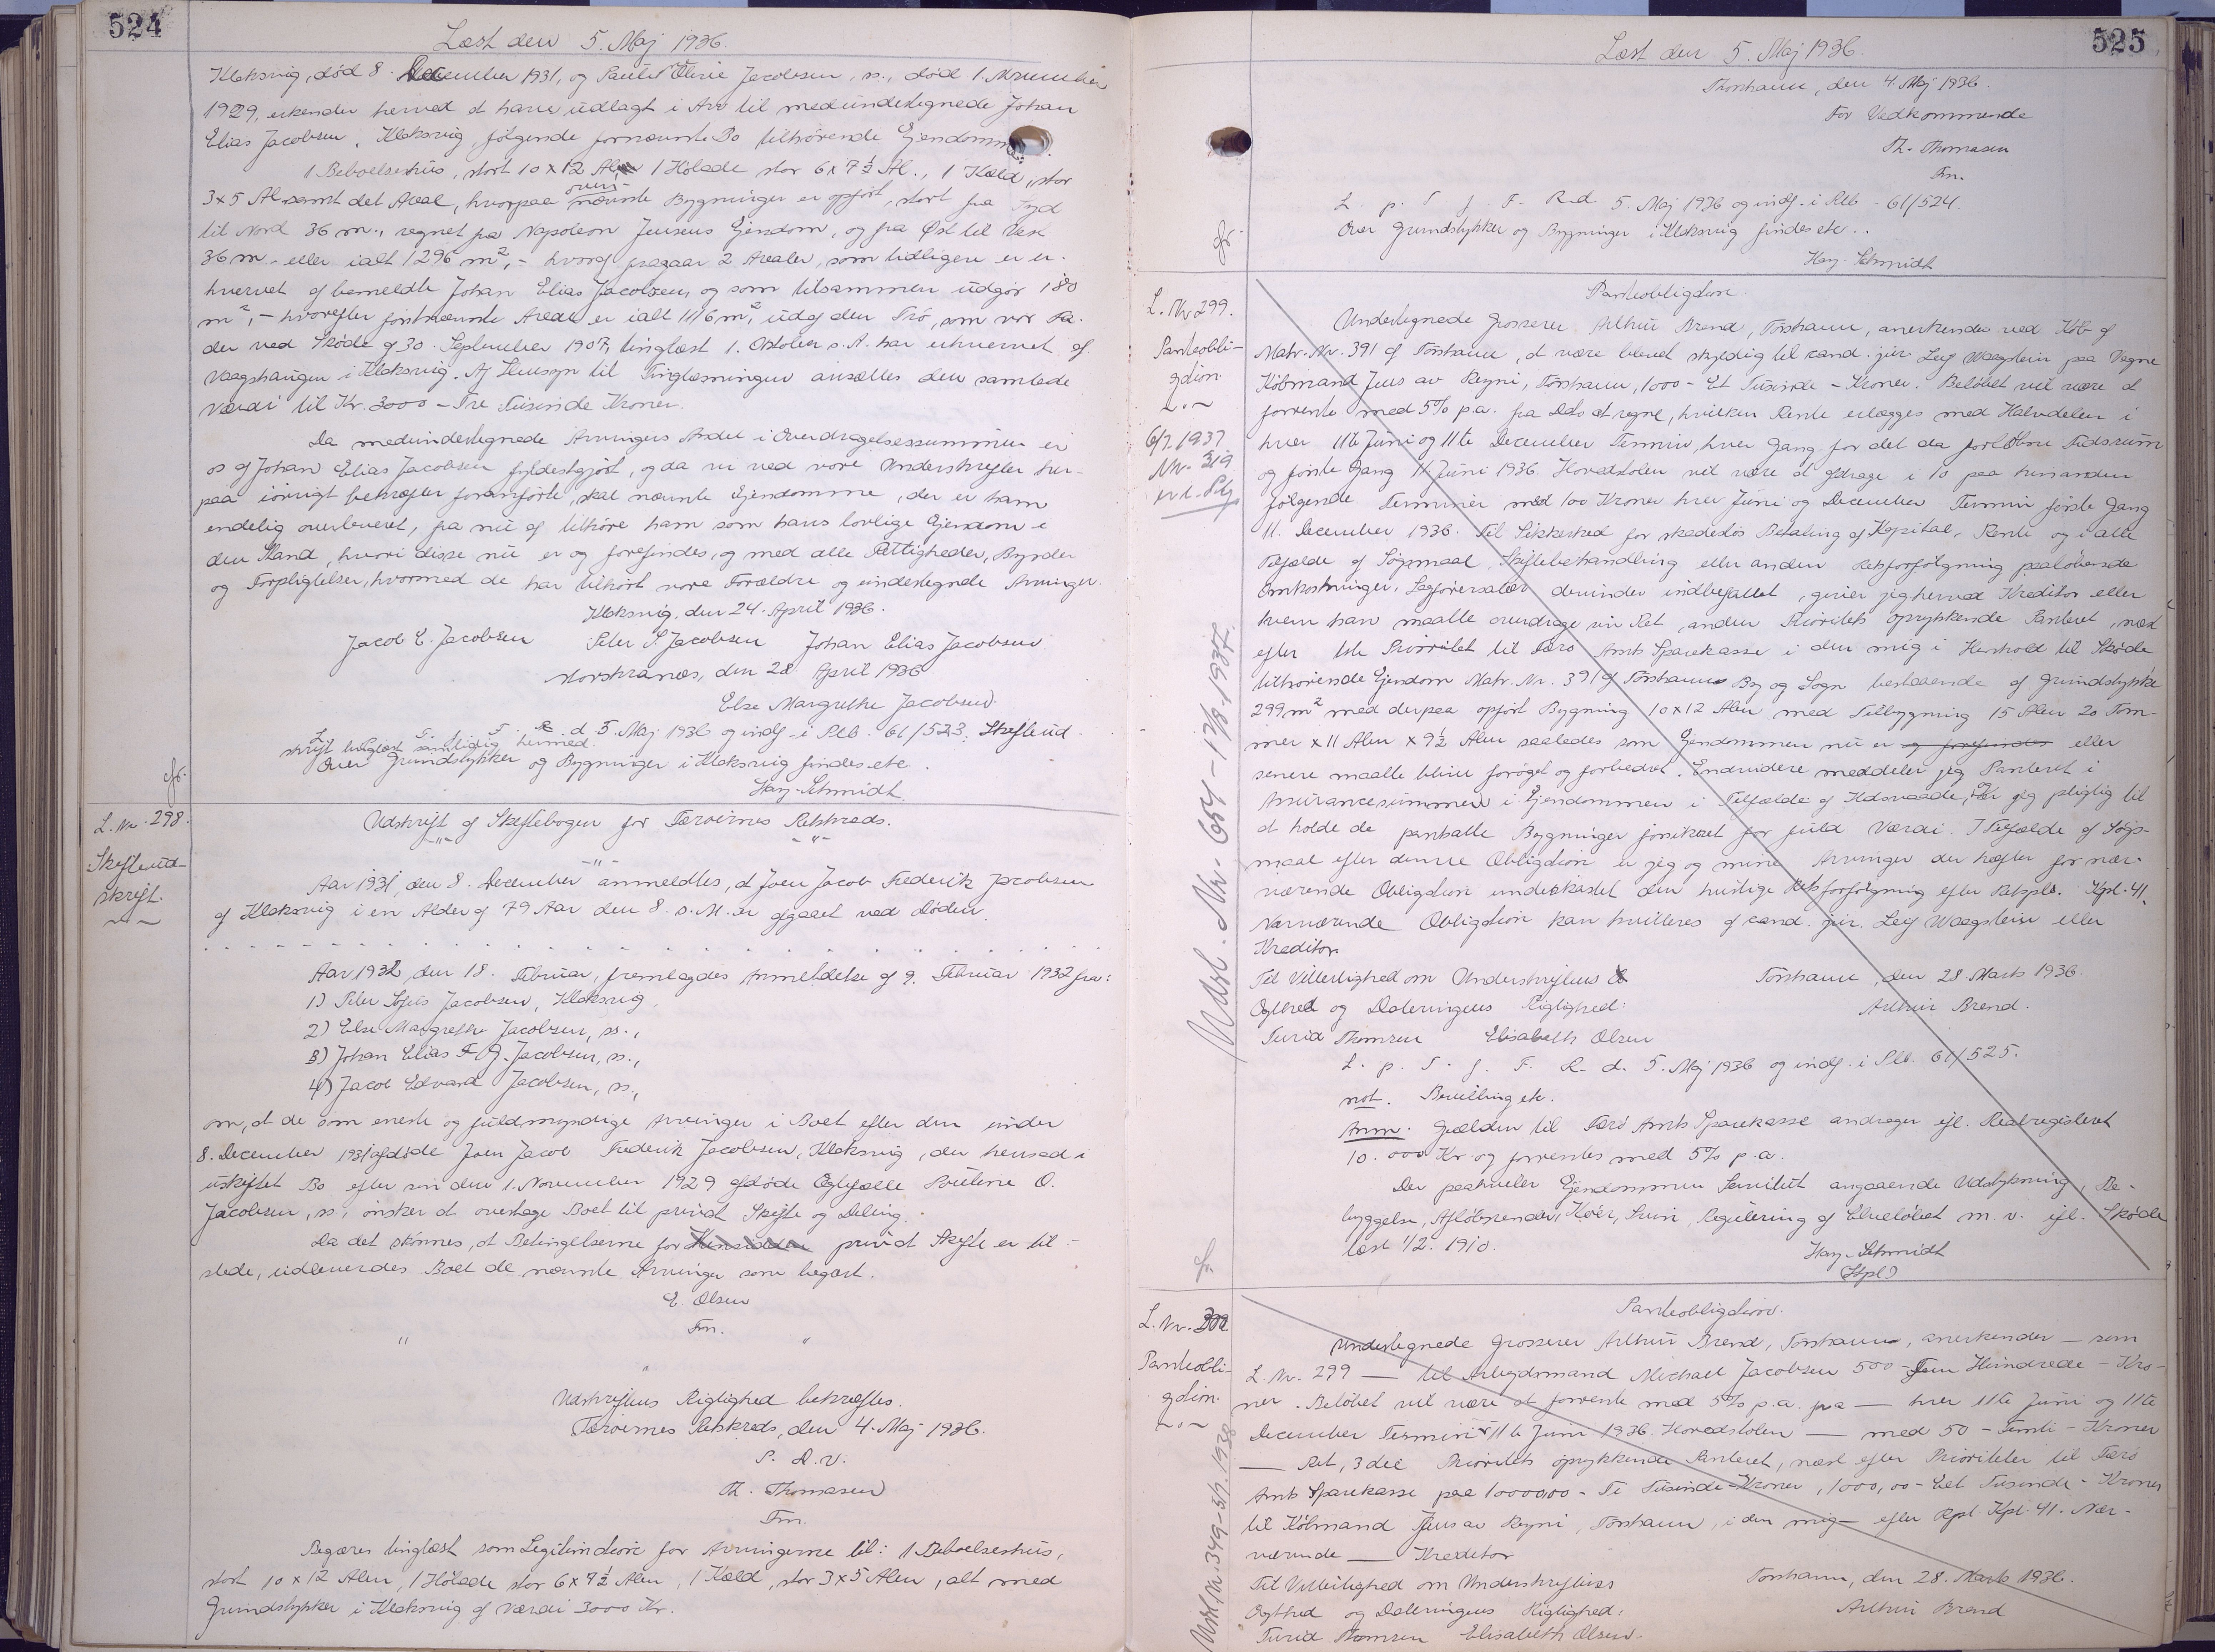 524
Læst den 5. Maj 1936.
Klaksvig, død 8. December 1931, og Pauline Olivie Jacobsen, ss., død 1. November
1929, erkender herved at have udlagt i Arv til medundertegnede Johan
Elias Jacobsen, Klaksvig, følgende fornævnte Bo tilhørende Ejendomme:
1 Beboelseshus, stort 10 x 12 Alen 1 Hølade stor 6 x 7½ Al., 1 Kæld, stor
3x5 Al. samt det Areal, hvorpaa ovennævnte Bygninger er opført, stort fra Syd
til Nord 36 m., regnet fra Napoleon Jensens Ejendom, og fra Øst til Vest
36 m - eller ialt 1296 m², - hvoraf fragaar 2 Arealer, som tidligere er er-
hvervet af bemeldte Johan Elias Jacobsen, og som tilsammen udgør 180
m², - hvorefter førstnævnte Areal er ialt 1116 m², udaf den Trø, som vor Fa-
der ved Skøde af 30. September 1907, tinglæst 1. Oktober s.A. har erhvervet af
Vaagshaugen i Klaksvig. Af Hensyn til Tinglæsningen ansættes den samlede
Værdi til Kr. 3000 - Tre Tusinde Kroner.
Da medundertegnede Arvingers Andel i Overdragelsessummen er
os af Johan Elias Jacobsen fyldestgjort, og da vi ved vore Underskrifter her-
paa iøvrigt bekræfter foranførte, skal nævnte Ejendomme, der er ham
endelig overleveret, fra nu af tilhøre ham som hans lovlige Ejendom i
den Stand, hvori disse nu er og forefindes, og med alle Rettigheder, Byrder
og Forpligtelser, hvormed de har tilhørt vore Forældre og undertegnede Arvinger.
Klaksvig, den 24. April 1936.
Jacob E. Jacobsen Peter S. Jacobsen Johan Elias Jacobsen
Norstranæs, den 28 April 1936
Else Margrethe Jacobsen.
L. T. f. F. R. d. 5. Maj 1936 og indf. i Plb. 61/523. Skifteud-
skrift tinglæst samtidig hermed.
Over Grundstykker og Bygninger i Klaksvig findes etc.
Hay-Schmidt.
L. Nr. 298.
Skifteud-
skrift.
Udskrift af Skiftebogen for Færøernes Retskreds.
-"- -"-
-"-
Aar 1931, den 8. December anmeldtes, at Joen Jacob Frederik Jacobsen
af Klaksvig i en Alder af 79 Aar den 8. s.M. er afgaaet ved Døden.
Aar 1932, den 18. Februar, fremlagdes Anmeldelse af 9. Februar 1932 fra:
1) Peter Sofus Jacobsen, Klaksvig.
2) Else Margrethe Jacobsen, ss.,
3) Johan Elias F. G. Jacobsen, ss.,
4) Jacob Edvard Jacobsen, ss.,
om, at de som eneste og fuldmyndige Arvinger i Boet efter den under
8. December 1931 afdøde Joen Jacob Frederik Jacobsen, Klaksvig, der hensad i
uskiftet Bo efter sin den 1. November 1929 afdøde Ægtefælle Pouline O.
Jacobsen, ss., ønsker at overtage Boet til privat Skifte og Deling.
Da det skønnes, at Betingelserne for Hensidden privat Skifte er til-
stede, udleveredes Boet de nævnte Arvinger som begært.
E. Olsen
Fm.
" "
"
Udskriftens Rigtighed bekræftes.
Færøernes Retskreds, den 4. Maj 1936.
P. D. V.
Th. Thomasen
Fm.
Begæres tinglæst som Legitimation for Arvingerne til: 1 Beboelseshus,
stort 10 x 12 Alen, 1 Hølade stor 6 x 9½ Alen, 1 Kæld, stor 3 x 5 Alen, alt med
Grundstykker i Klaksvig af Værdi 3000 Kr.
525
Læst den 5. Maj 1936.
Thorshavn, den 4. Maj 1936.
For Vedkommende
Th. Thomasen
Fm.
L. p. T. f. F. R. d. 5. Maj 1936 og indf. i Plb. 61/524.
Over Grundstykker og Bygninger i Klaksvig findes etc..
Hay-Schmidt
L. Nr. 299.
Panteobli-
gation.
6/7. 1937
Udsl. Nr. 654 - 17/8. 1937.
Panteobligation.
Undertegnede Grosserer Arthur Brend, Torshavn, anerkender ved Køb af
Matr. Nr. 391 af Torshavn, at være blevet skyldig til cand. jur. Leif Waagstein paa Vegne
Købmand Jens av Reyni, Torshavn, 1000 - Et Tusinde - Kroner. Beløbet vil være at
forrente med 5% p.a. fra Dato at regne, hvilken Rente erlægges med Halvdelen i
hver 11te Juni og 11te December Termin, hver Gang for det da forløbne Tidsrum
og første Gang 11 Juni 1936. Hovedstolen vil være at afdrage i 10 paa hinanden
følgende Terminer med 100 Kroner hver Juni og December Termin første Gang
11. December 1936. Til Sikkerhed for skadesløs Betaling af Kapital, Rente og i alle
Tilfælde af Søgsmaal, Skiftebehandling eller anden Retsforfølgning paaløbende
Omkostninger, Sagførersalær derunder indbefattet, giver jeg herved Kreditor eller
hvem han maatte overdrage sin Ret, anden Prioritets oprykkende Panteret, næst
efter 1ste Prioritet til Færø Amts Sparekasse i den mig i Henhold til Skøde
tilhørende Ejendom Matr. Nr. 391 af Torshavns By og Sogn bestaaende af Grundstykke
299 m² med derpaa opført Bygning 10x12 Alen med Tilbygning 15 Alen 20 Tom-
mer x 11 Alen x 9½ Alen saaledes som Ejendommen nu er og forefindes eller
senere maatte blive forøget og forbedret. Endvidere meddeler jeg Panteret i
Assurancesummen i Ejendommen i Tilfælde af Ildsvaade, Er jeg pligtig til
at holde de pantsatte Bygninger forsikret for fuld Værdi. I Tilfælde af Søgs-
maal efter denne Obligation er jeg og mine Arvinger der hæfter for nær-
værende Obligation underkastet den hurtige Retsforfølgning efter Retspl. Kpl. 41.
Nærværende Obligation kan kvitteres af cand. jur. Leif Waagstein eller
Kreditor
Til Vitterlighed om Underskriftens Torshavn, den 28 Marts 1936.
Ægthed og Dateringens Rigtighed: Arthur Brend.
Turid Thomsen Elisabeth Olsen
L. p. T. f. F. R. d. 5. Maj 1936 og indf. i Plb. 61/525.
not. Bevilling etc.
Anm. Gælden til Færø Amts Sparekasse andrager ifl. Realregisteret
10.000 Kr. og forrentes med 5% p.a.
Der paahviler Ejendommen Servitut angaaende Udstykning, Be-
byggelse, Afløbsrender, Kvær, Svin, Regulering af Elveløbet m. v. ifl. Skøde
læst 1/2. 1910.
Hay-Schmidt
(Stpl)
L. Nr. 300
Panteobli-
gation.
Udsl. Nr. 349 - 5/7. 1938
Panteobligation.
Undertegnede Grosserer Arthur Brend, Torshavn, anerkender — som
L. Nr. 299 — til Arbejdsmand Michael Jacobsen 500 - Fem Hundrede - Kro-
ner. Beløbet vil være at forrente med 5% p.a. fra — hver 11te Juni og 11te
December Termin 11te Juni 1936. Hovedstolen — med 50 - Femti - Kroner
— Ret, 3die Prioritets oprykkende Panteret, næst efter Prioriteter til Færø
Amts Sparekasse paa 10000,00 - Ti Tusinde - Kroner, 1000,00 - Eet Tusinde - Kroner
til Købmand Jens av Reyni, Torshavn, i den mig — efter Rpl. Kpl. 41. Nær-
værende — Kreditor
Til Vitterlighed om Underskriftens Torshavn, den 28. Marts 1936.
Ægthed og Dateringens Rigtighed: Arthur Brend
Turid Thomsen Elisabeth Olsen.